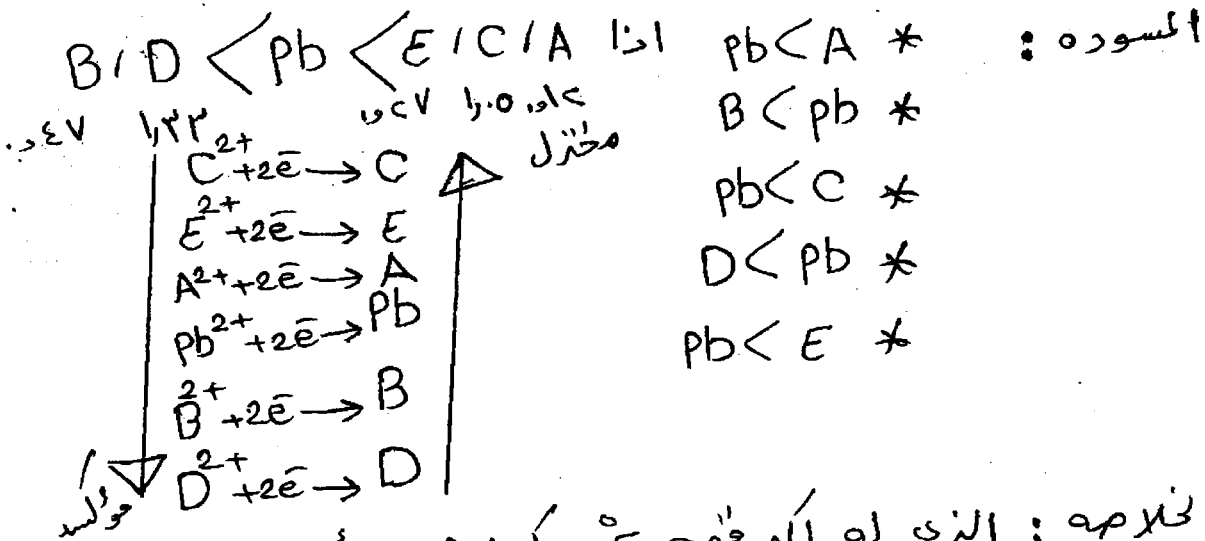 المسوده :
Pb<A *
B<Pb *
Pb<C *
D<Pb *
Pb<E *
اذا B/D < Pb < E/C/A
٠,٤٧ ١,٣٣
C²⁺+2ē → C
E²⁺+2ē → E
A²⁺+2ē → A
Pb²⁺+2ē → Pb
B²⁺+2ē → B
D²⁺+2ē → D
مختزل
مؤكسد
خلاصه : الذي له اكبر